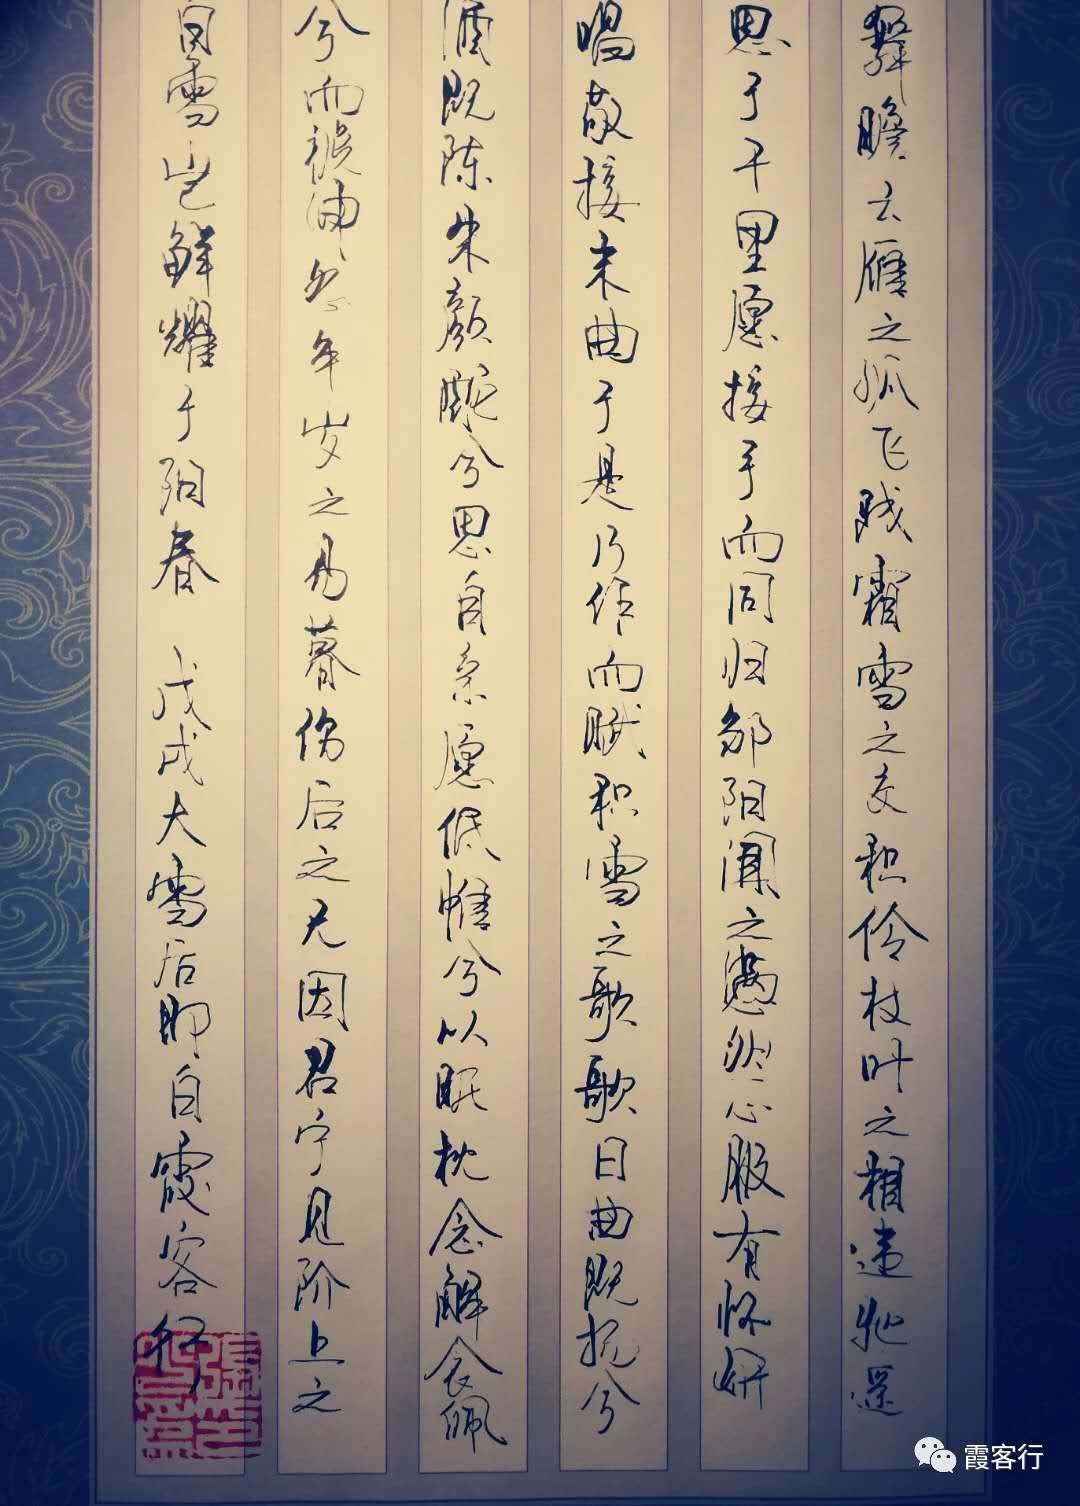 舞瞻云雁之孤飞践霜雪之交积伶枝叶之相违驰遥
思于千里愿接手而同归邹阳闻之懑然心服有怀妍
唱敬接末曲于是乃作而赋积雪之歌歌曰曲既扬兮
酒既陈朱颜酡兮思自亲愿低帷兮以昵枕念解衣佩
兮而褫绅怨年岁之易暮伤后之无因君宁见阶上之
白雪岂鲜耀于阳春 戊戌大雪后即自霞客行
霞客行